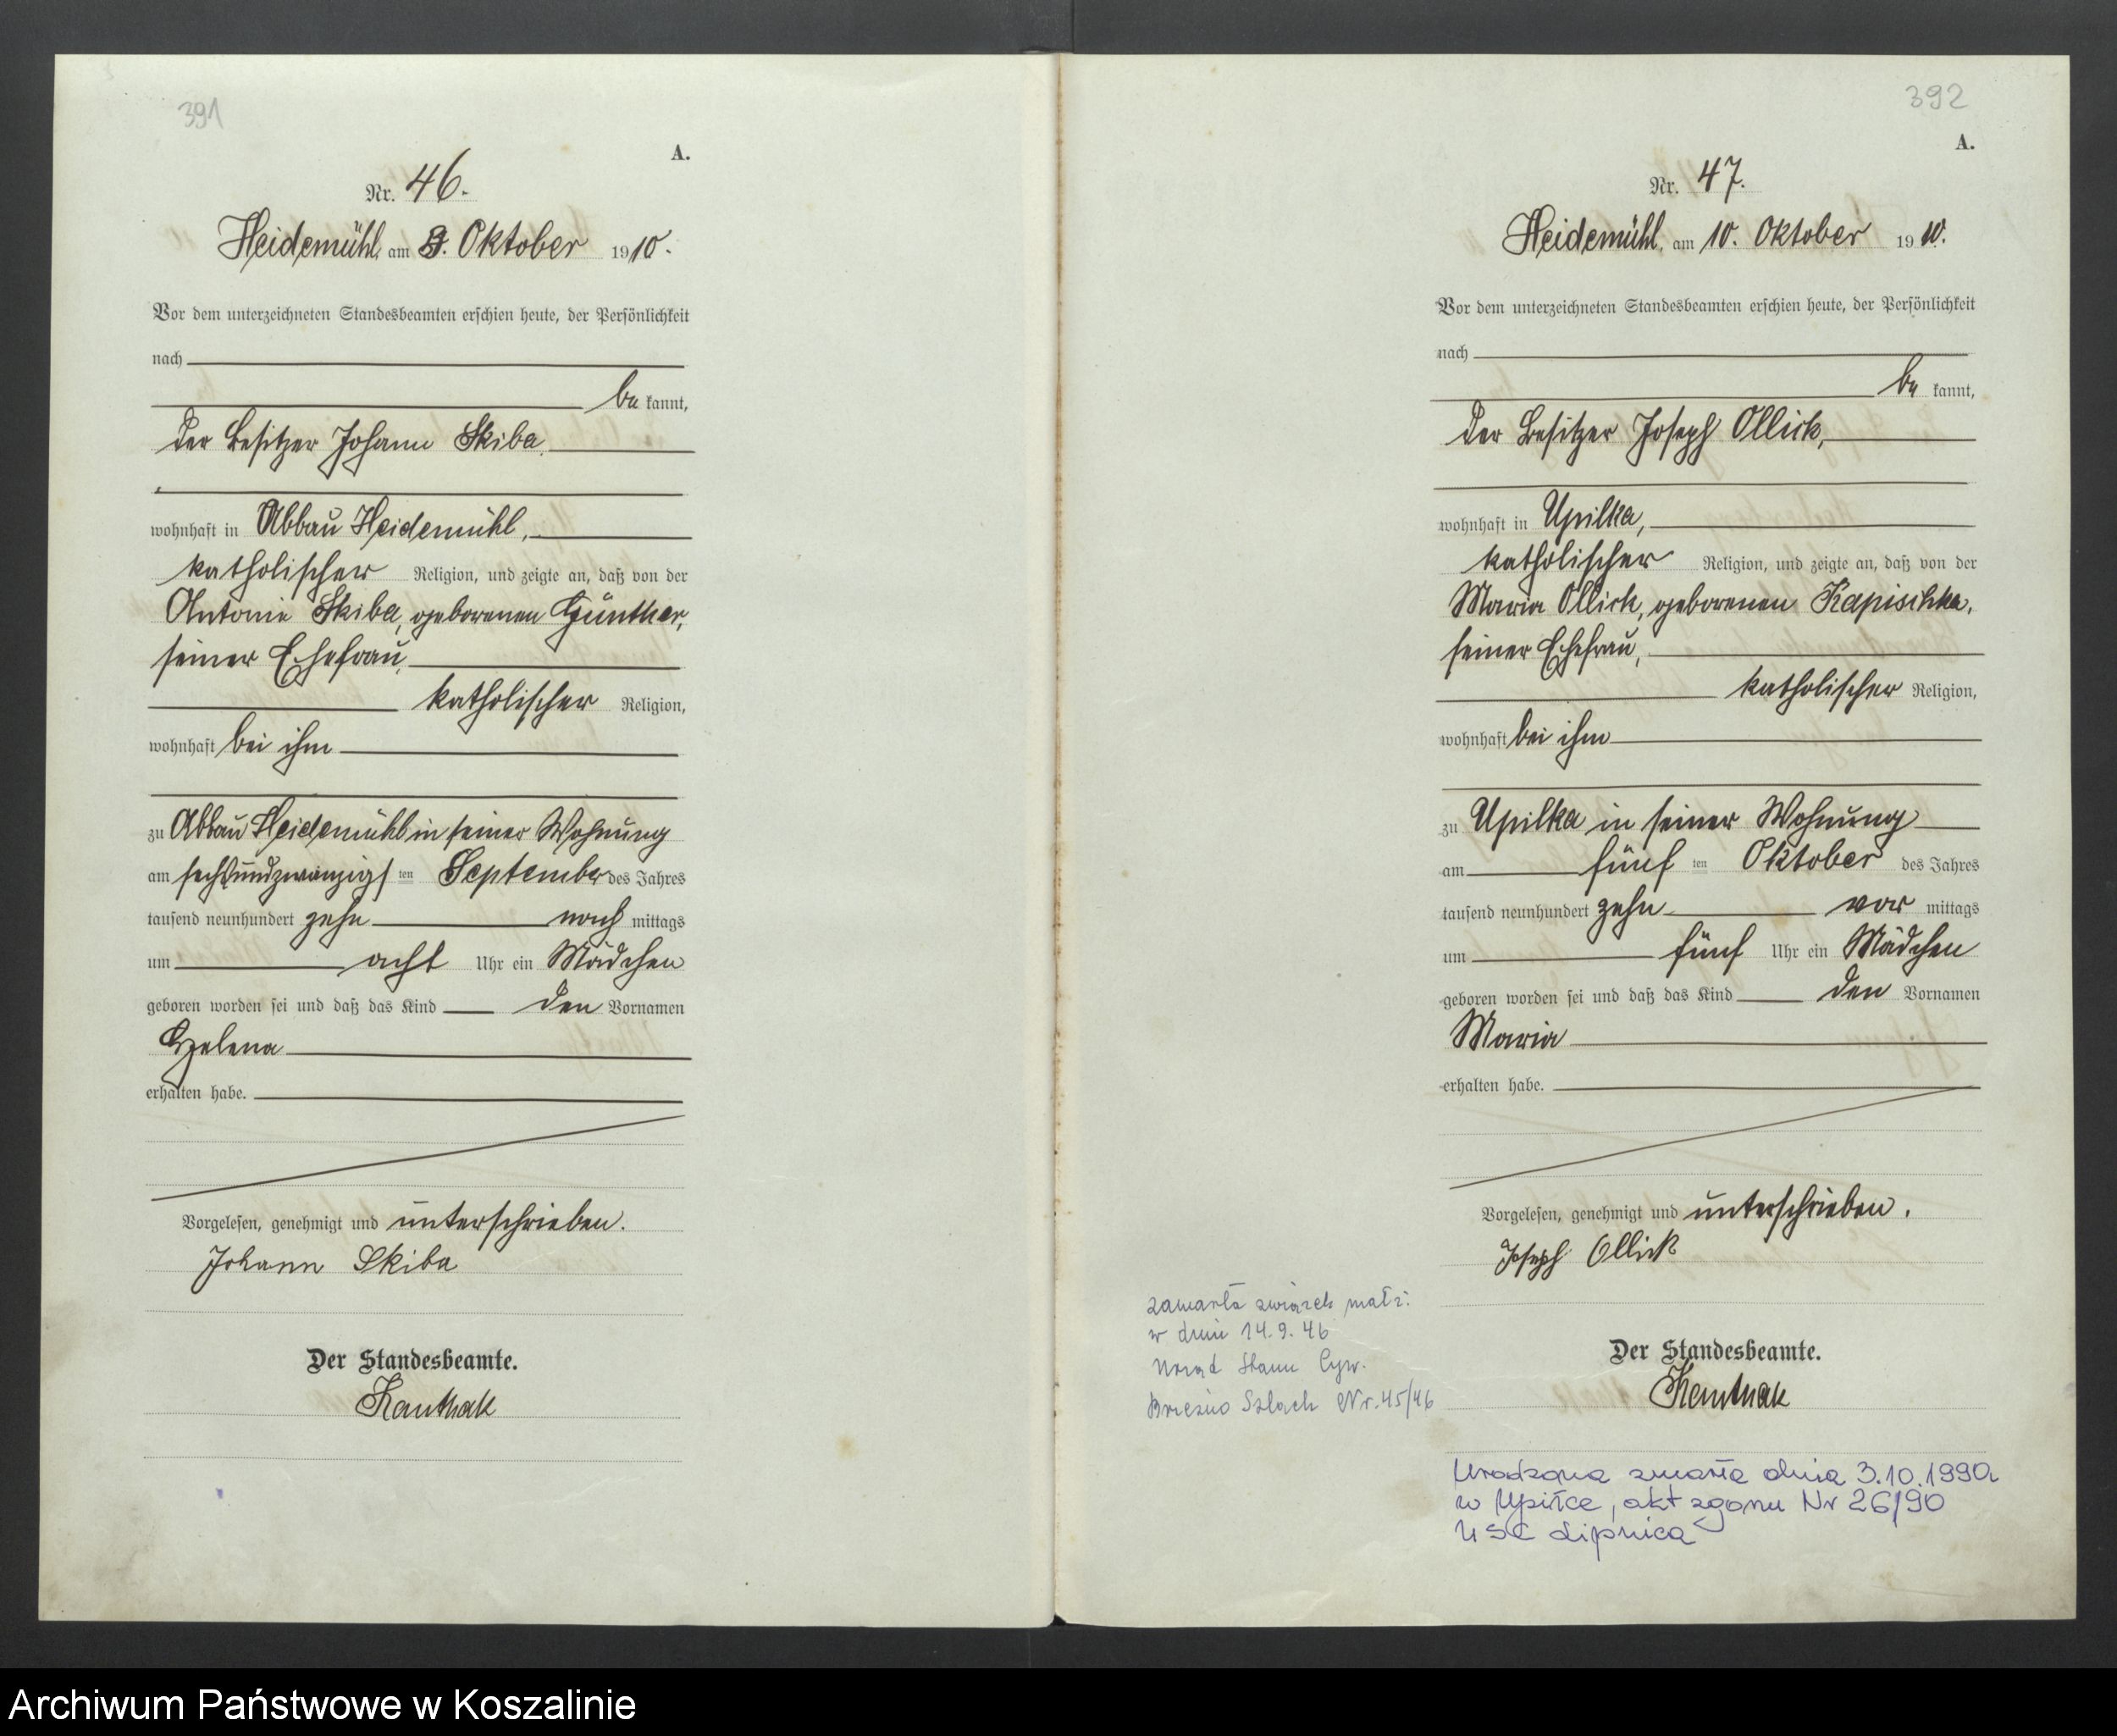 391
A.
Nr. 46.
Heidemühl, am 3. Oktober 1910.
Vor dem unterzeichneten Standesbeamten erschien heute, der Persönlichkeit
nach
be kannt,
der Besitzer Johann Skiba,
wohnhaft in Abbau Heidemühl,
katholischer Religion, und zeigte an, daß von der
Antonie Skiba, geborenen Günther,
seiner Ehefrau,
katholischer Religion,
wohnhaft bei ihm
zu Abbau Heidemühl in seiner Wohnung
am sechsundzwanzigs ten September des Jahres
tausend neunhundert zehn nach mittags
um acht Uhr ein Mädchen
geboren worden sei und daß das Kind den Vornamen
Helena
erhalten habe.
Vorgelesen, genehmigt und unterschrieben.
Johann Skiba
Der Standesbeamte.
Kauthak
392
A.
Nr. 47.
Heidemühl, am 10. Oktober 1910.
Vor dem unterzeichneten Standesbeamten erschien heute, der Persönlichkeit
nach
be kannt,
der Besitzer Joseph Ollick,
wohnhaft in Upilka,
katholischer Religion, und zeigte an, daß von der
Maria Ollick, geborenen Kapischka,
seiner Ehefrau,
katholischer Religion,
wohnhaft bei ihm
zu Upilka in seiner Wohnung
am fünf ten Oktober des Jahres
tausend neunhundert zehn vor mittags
um fünf Uhr ein Mädchen
geboren worden sei und daß das Kind den Vornamen
Maria
erhalten habe.
Vorgelesen, genehmigt und unterschrieben.
Joseph Ollick
Der Standesbeamte.
Kauthak
zawarła związek małż.
w dniu 14.9.46
Urząd Stanu Cyw.
Brzeźno Szlach Nr. 45/46
Urodzona zmarła dnia 3.10.1990
w Upiłce, akt zgonu Nr 26/90
USC Lipnica
Archiwum Państwowe w Koszalinie